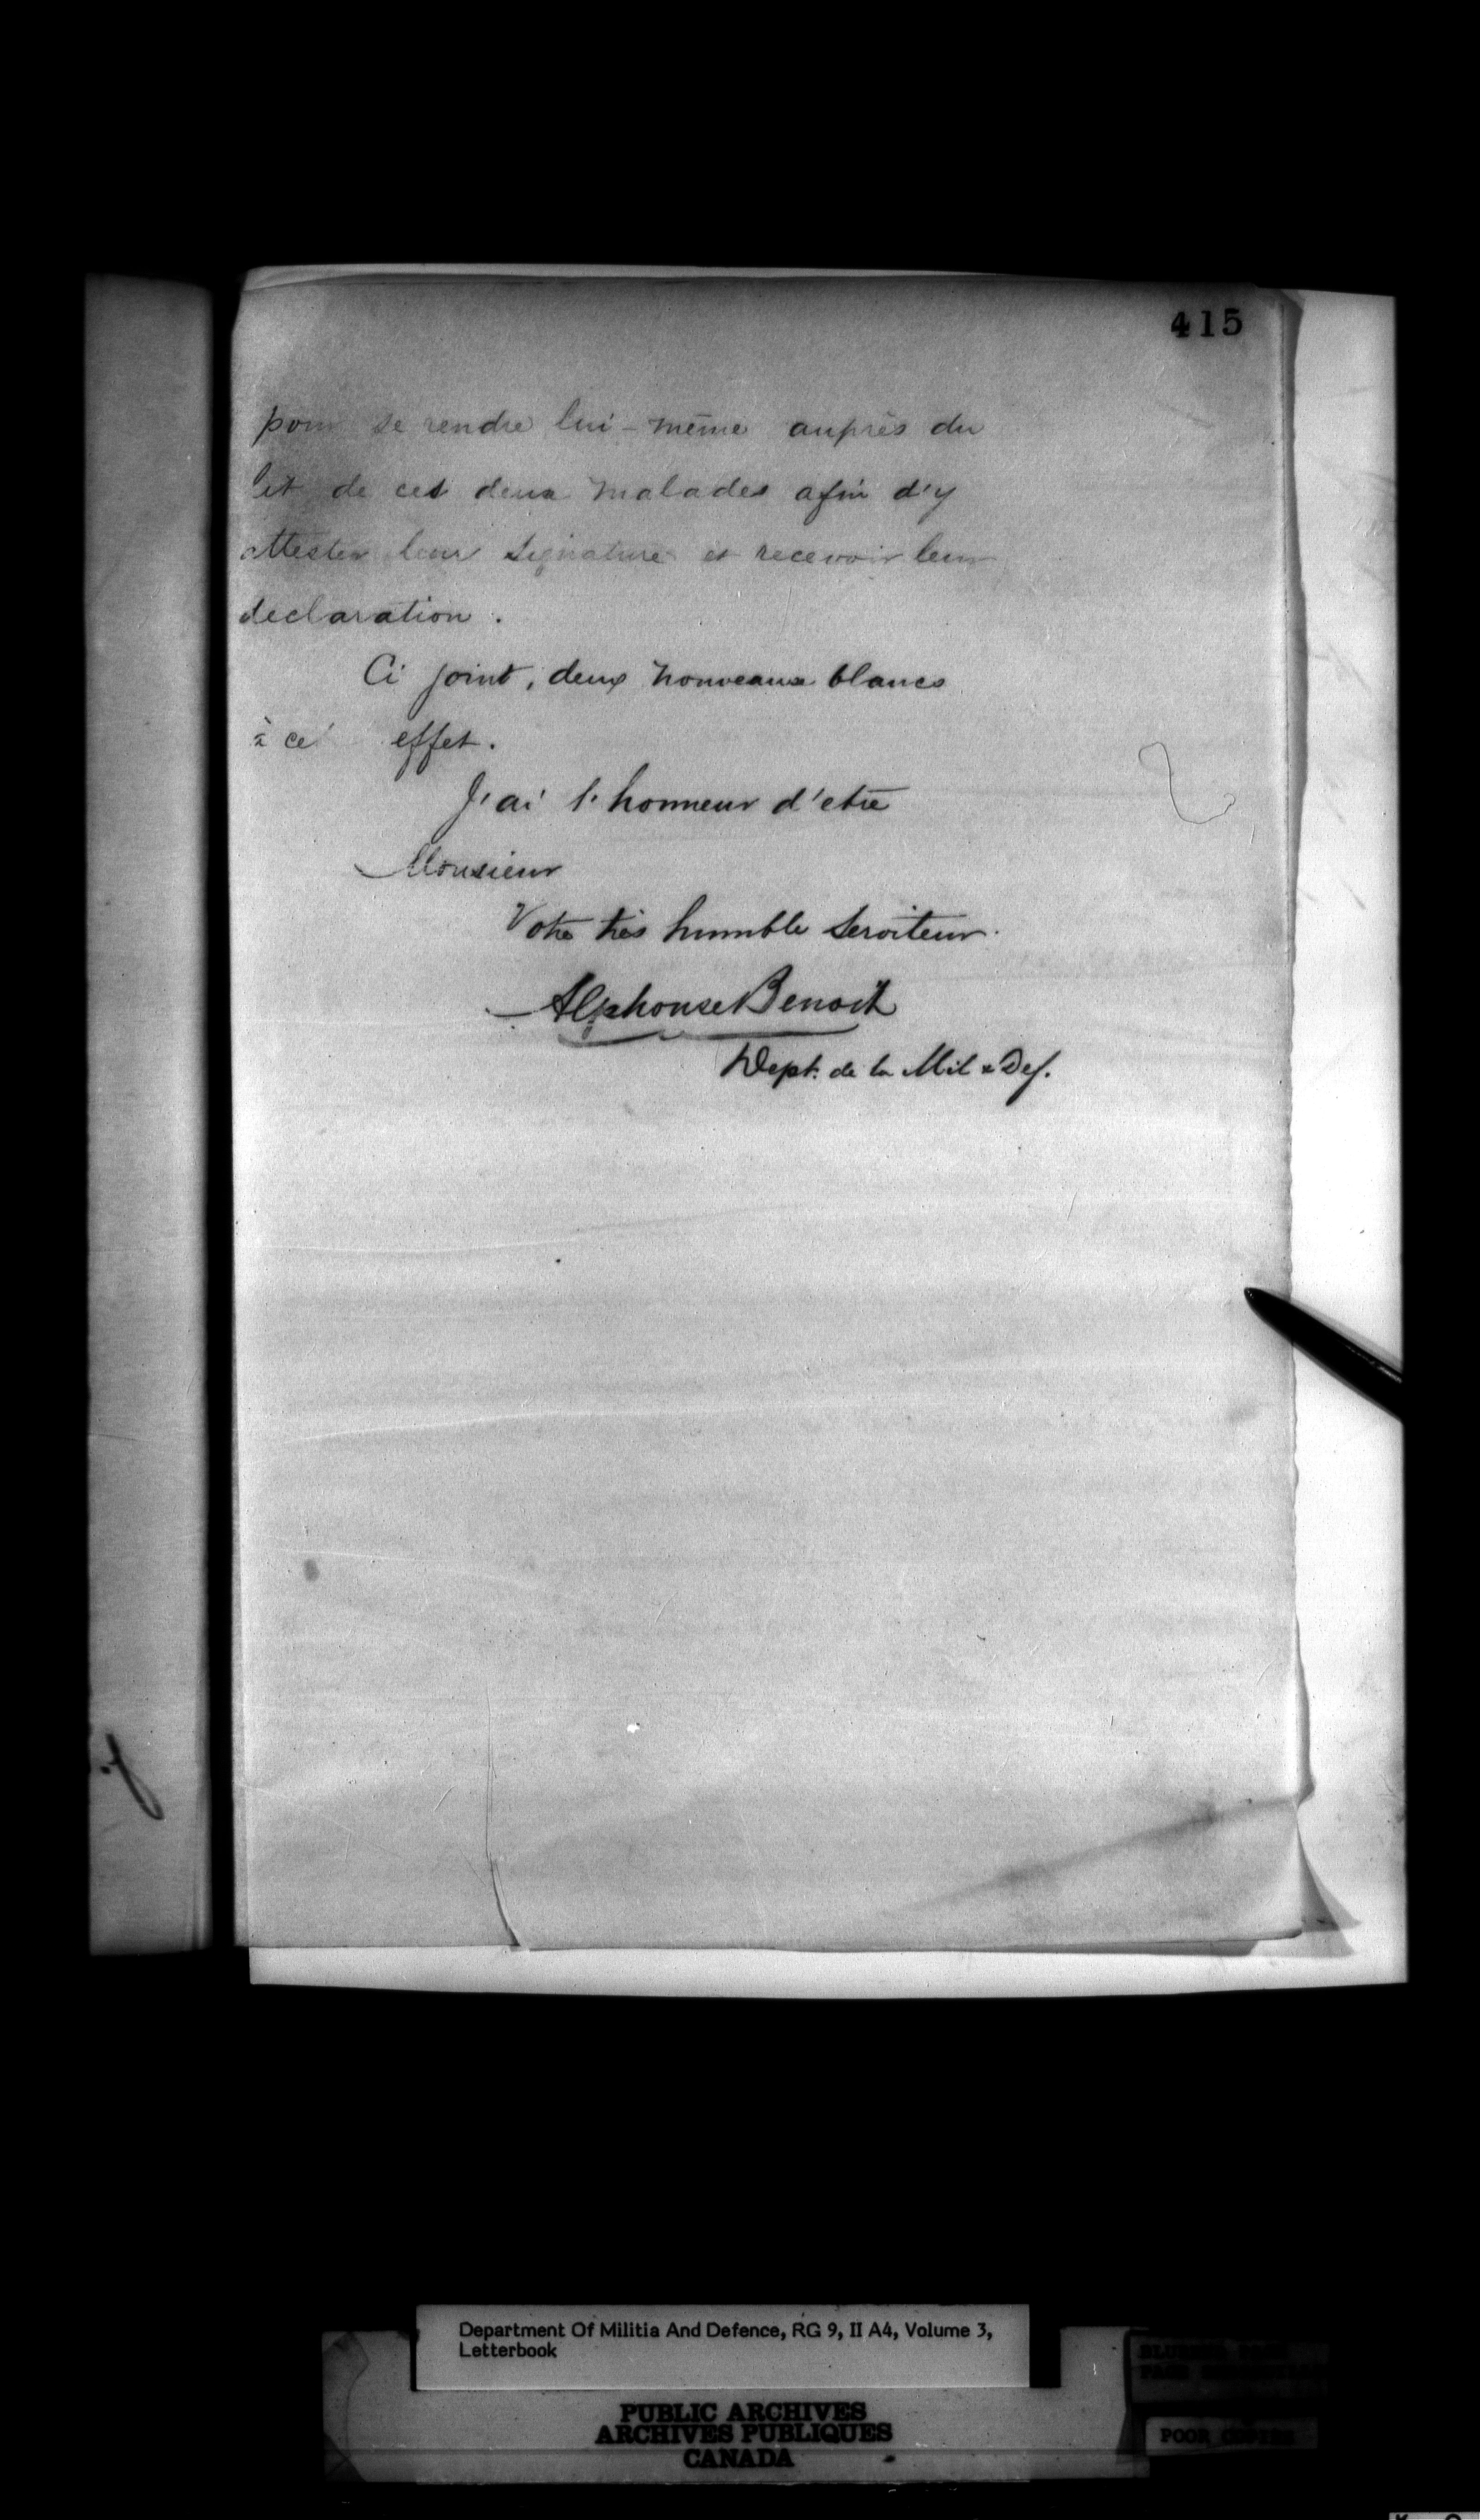 415
pour se rendre lui-même auprès du
lit de ces deux malades afin d'y
attester leur signature et recevoir leur
declaration.
Ci joint, deux nouveaux blancs
à cet effet.
J'ai l'honneur d'etre
Monsieur
Votre très humble Serviteur.
Alphonse Benoit
Dept. de la Mil & Def.
Department Of Militia And Defence, RG 9, II A4, Volume 3,
Letterbook
PUBLIC ARCHIVES
ARCHIVES PUBLIQUES
CANADA
POOR